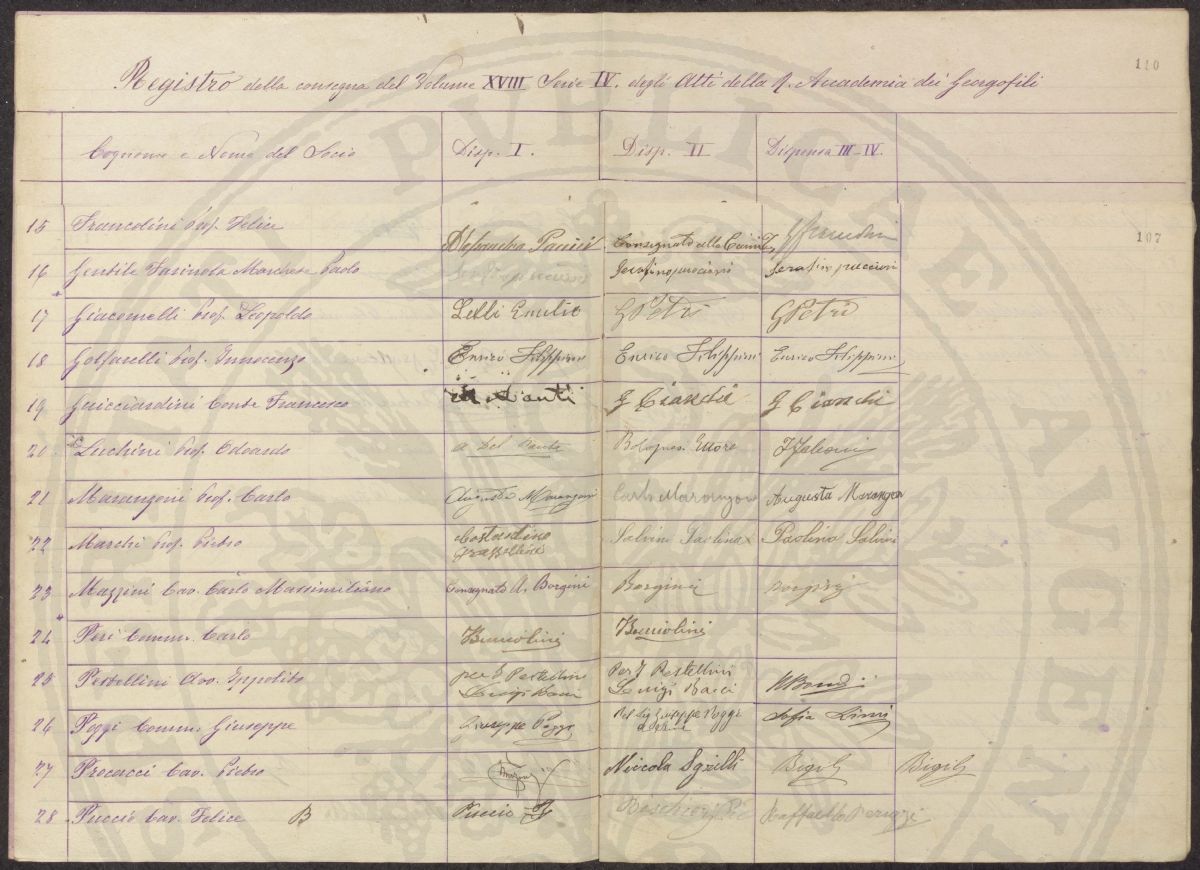 110
Registro della consegna del Volume XVIII Serie IV. degli Atti della R. Accademia dei Georgofili
Cognome e Nome del Socio Disp. I. Disp. II Dispensa III-IV.
107
15 Francolini Prof. Felice Consegnato alla
16 Gentile Farinola Marchese Paolo Serafino puccioni Serafino puccioni Serafin puccioni
17 Giacomelli Prof. Leopoldo Lelli Emilio G Petri G Petri
18 Golfarelli Prof. Innocenzo Enrico Filippini Enrico Filippini Enrico Filippini
19 Guicciardini Conte Francesco G Cianchi G Cianchi
20 Luchini Prof. Odoardo a Del Ettore
21 Marangoni Prof. Carlo Augusta Marangoni Carlo Marangoni Augusta Marangoni
22 Marchi Prof. Pietro Costantino Salvini Paolina Paolina Salvini
Grazzellini
23 Mazzini Cav. Carlo Massimiliano Consegnato A. Borgini Borgini
24 Peri Comm. Carlo Bucciolini Bucciolini
25 Pestellini Avv. Ippolito per I Pestellini Per I Pestellini
Luigi Bacci Luigi Bacci
26 Poggi Comm. Giuseppe Giuseppe Poggi Giuseppe Poggi Sofia
27 Procacci Cav. Pietro Niccola Sgrilli Bigili Bigili
28 Puccio Cav. Felice B Puccio F Raffaello Peruzzi
PVBLICAE AVGENDAE